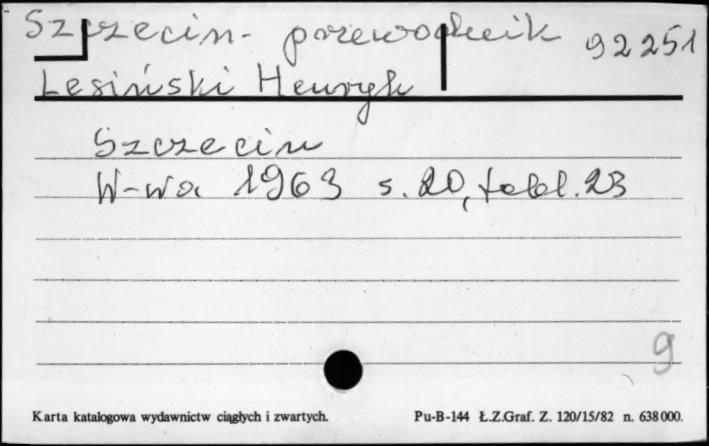 Szczecin - przewodnik 92251
Lesiński Henryk
Szczecin
W-wa 1963 s. 20, tabl. 23
9
Karta katalogowa wydawnictw ciągłych i zwartych. Pu-B-144 Ł.Z.Graf. Z. 120/15/82 n. 638 000.